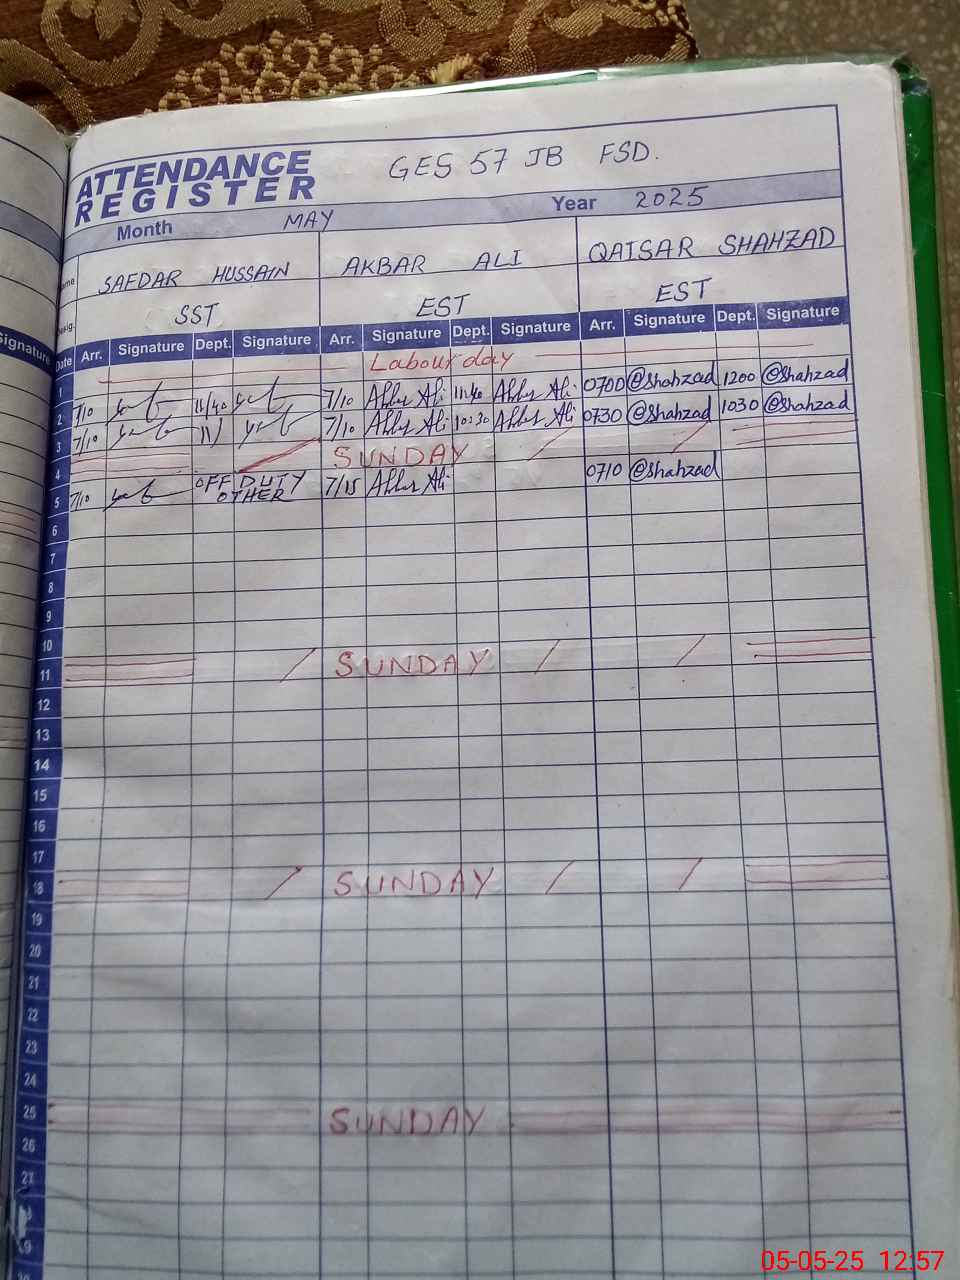 ATTENDANCE
REGISTER
GES 57 JB FSD.
Month MAY Year 2025
SAFDAR HUSSAIN AKBAR ALI QAISAR SHAHZAD
Desig. SST EST EST
Signature Date Arr. Signature Dept. Signature Arr. Signature Dept. Signature Arr. Signature Dept. Signature
1 Labour day
2 7/10 11/40 7/10 Akbar Ali 11:40 Akbar Ali 0700 @Shahzad 1200 @Shahzad
3 7/10 7/10 Akbar Ali 10:30 Akbar Ali 0730 @Shahzad 1030 @Shahzad
4 SUNDAY
5 7/10 OFF DUTY 7/15 Akbar Ali 0710 @Shahzad
OTHER
6
7
8
9
10
11 SUNDAY
12
13
14
15
16
17
18 SUNDAY
19
20
21
22
23
24
25 SUNDAY
26
27
05-05-25 12:57